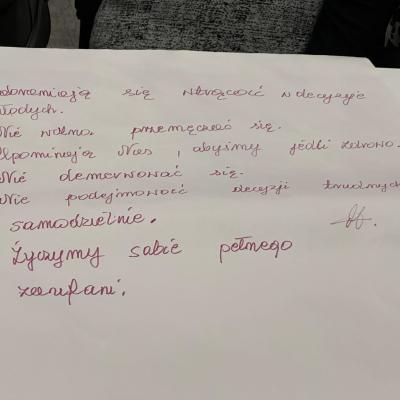 się wtrącać w decyzje
młodych.
Nie wolno przemęczać się.
Upominają Nas, abyśmy jedli zdrowo.
Nie denerwować się.
Nie podejmować decyzji trudnych
samodzielnie.
Życzymy sobie pełnego
zaufani.